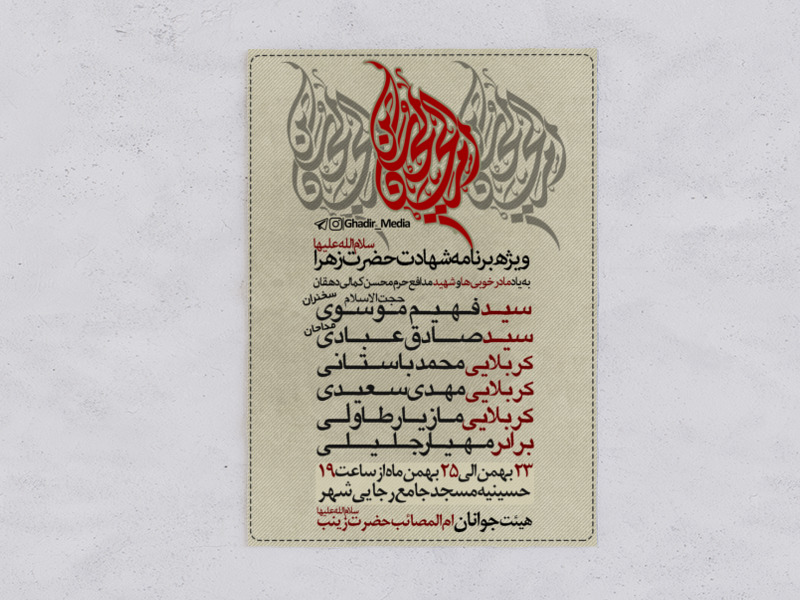 Ghadir_Media
سلام‌الله‌علیها
ویژه‌برنامه شهادت حضرت زهرا
به یاد مادر خوبی‌ها و شهید مدافع حرم محسن کمالی دهقان
حجت‌الاسلام
سید فهیم موسوی سخنران
سید صادق عبادی مداحان
کربلایی محمد باستانی
کربلایی مهدی سعیدی
کربلایی مازیار طاولی
برادر مهیار جلیلی
۲۳ بهمن الی ۲۵ بهمن ماه از ساعت ۱۹
حسینیه مسجد جامع رجایی شهر
سلام‌الله‌علیها
هیئت جوانان ام‌المصائب حضرت زینب